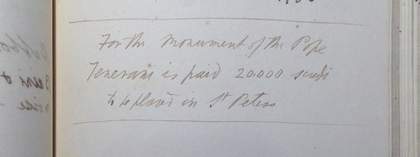 For the Monument of the Pope
Tenerani is paid 20.000 scudi
to be placed in St Peters